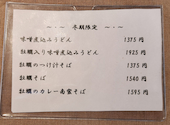 冬期限定
味噌煮込みうどん 1375円
牡蠣入り味噌煮込うどん 1925円
牡蠣のつけ汁そば 1375円
牡蠣そば 1540円
牡蠣のカレー南蛮そば 1595円